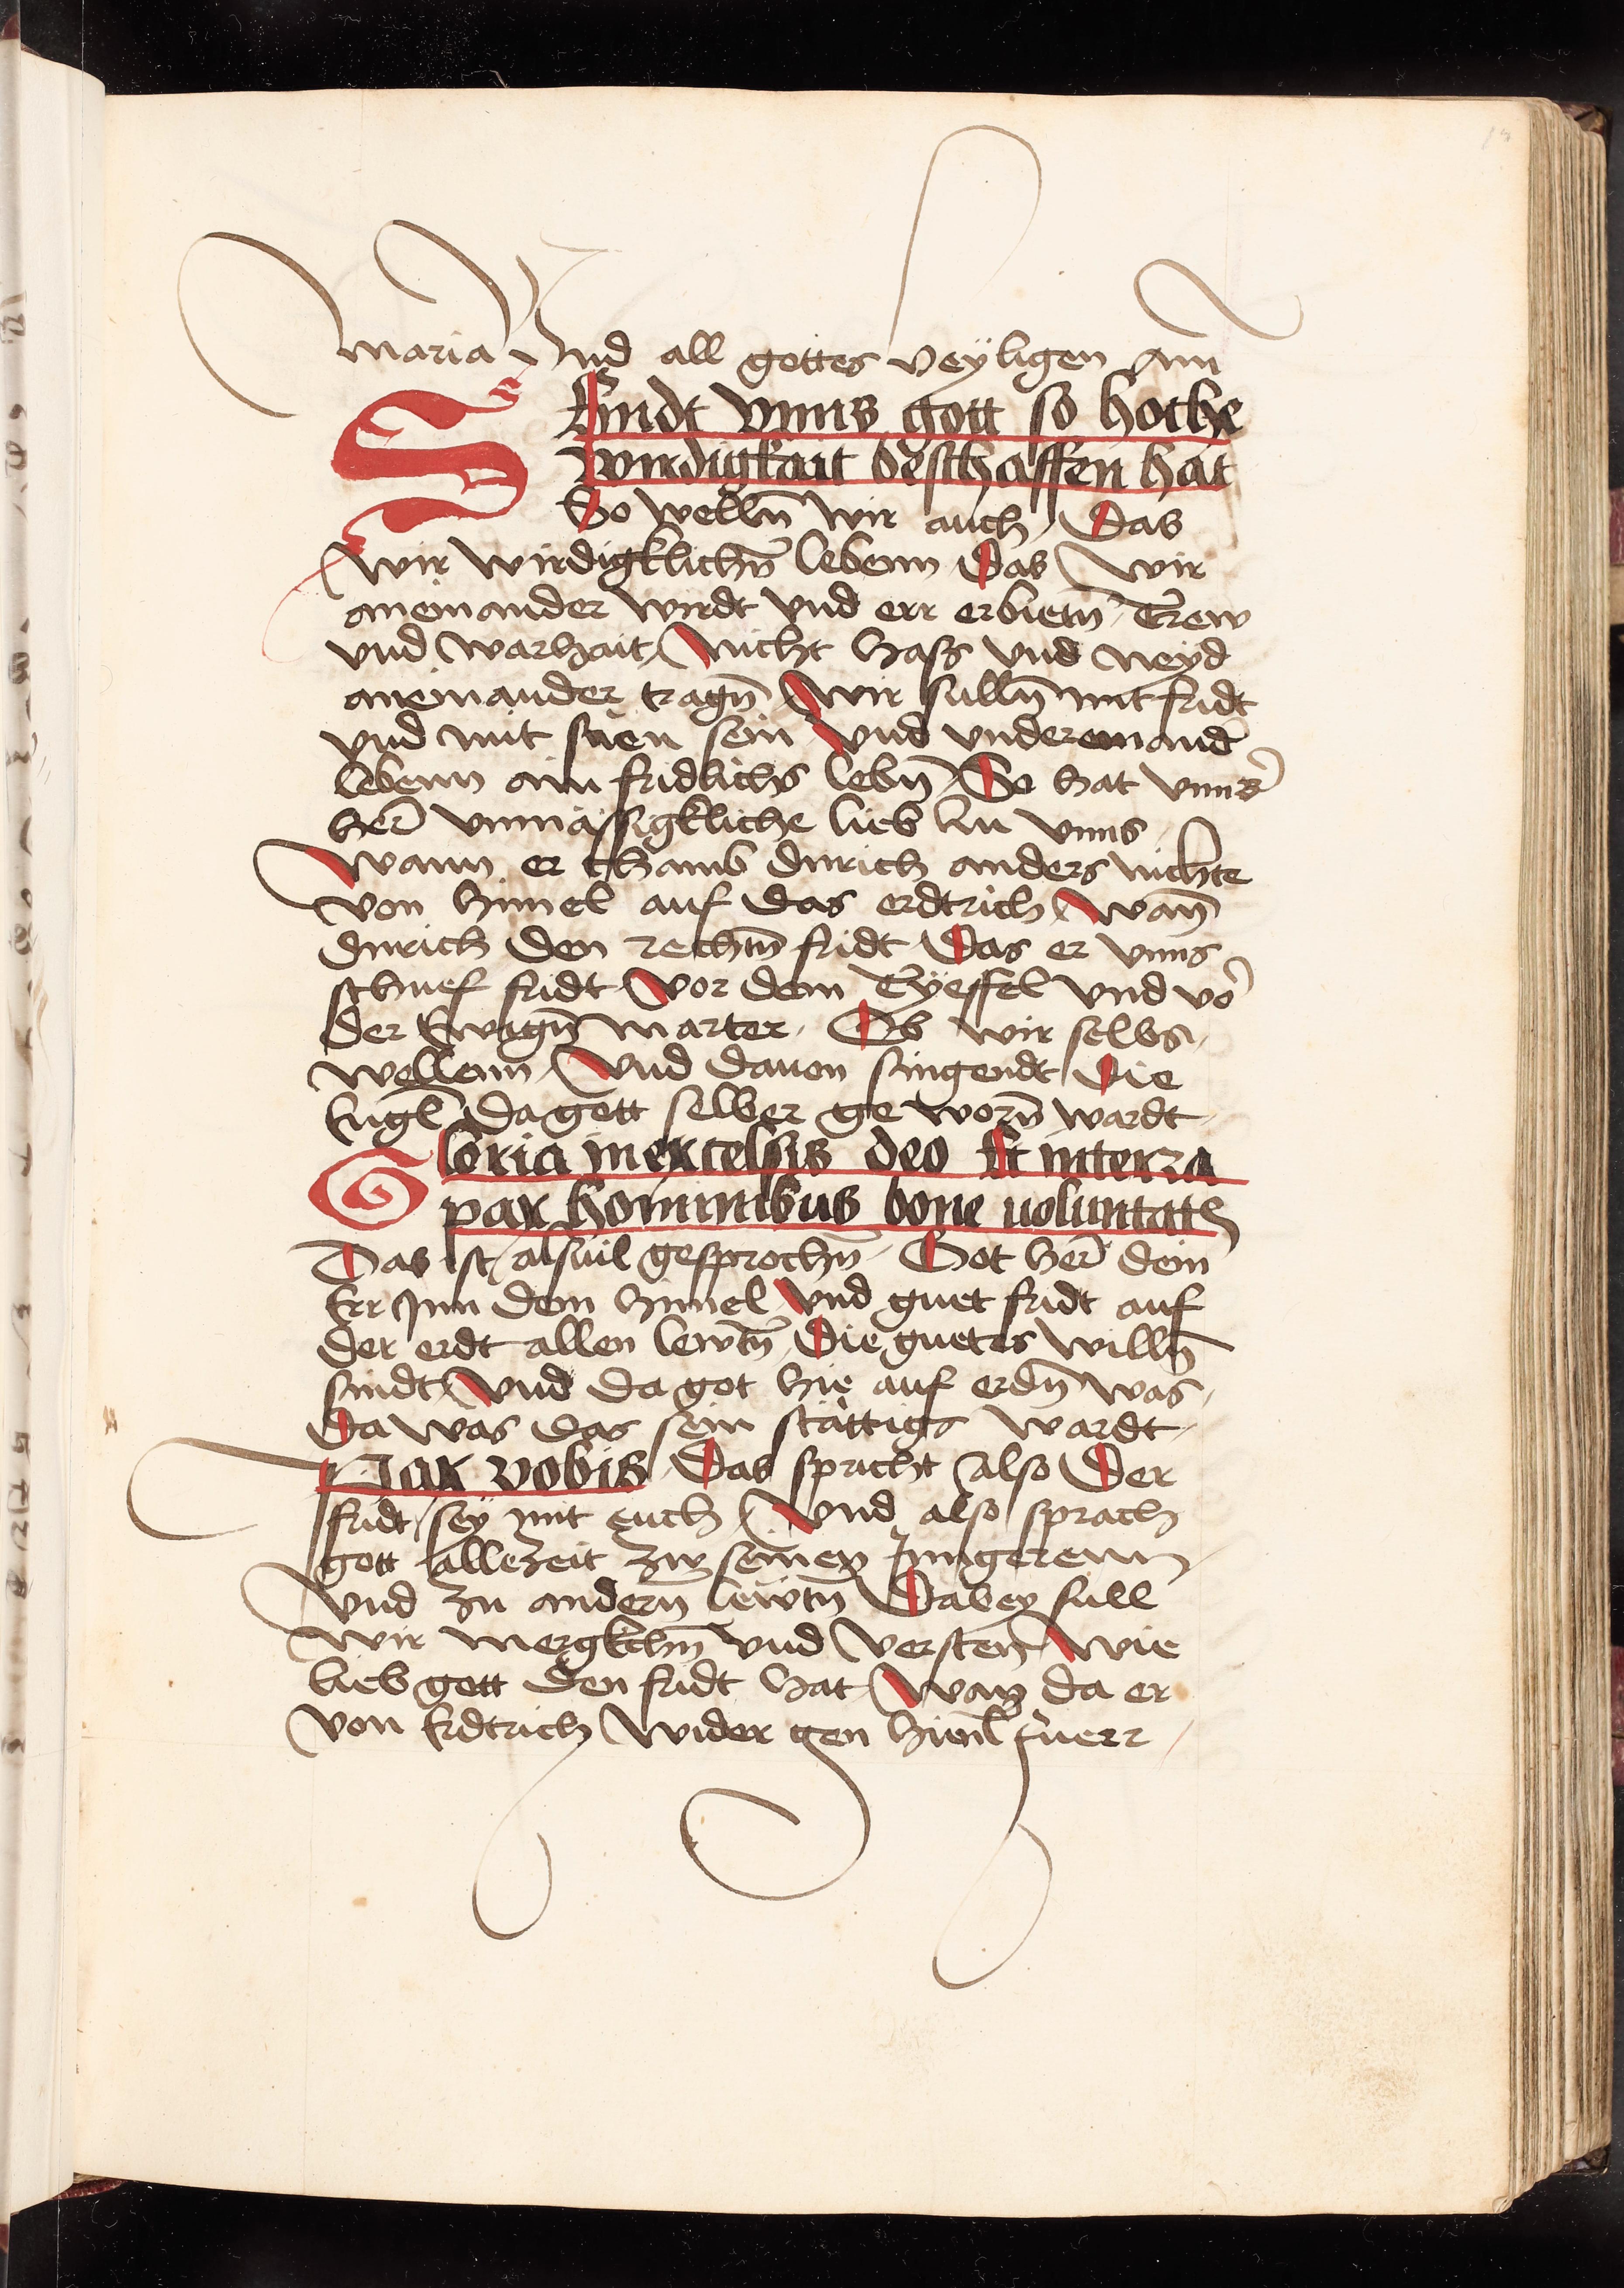 maria Vnd all gottes heyligen Am
SEindt vnns gott so hoche
wirdigkait beschaffen hat
So wellñ wir auch, Das
wir wirdigklichñ lebenn Das wir
aneinander wirdt vnd err erbietñ, Trew
vnd warhait, Nicht hass vnd neyd
aneinander tragñ Wir sullñ mit fridt
vnd mit süen sein vnd vndereinand̄
lebenn ain fridlichs lebñ So hat vnns̄
her̄ vnmässigkliche lieb zu vnns
Wann er chamb durich anders nichte
von himel auf das erdtrich wañ
durich den rechtñ fridt Das er vnns
schuef fridt vor dem Tyeffel vnd vō
der Ewigñ marter, Ob wir selbs,
wellenn, Vnd dauon singendt Die
Engl̄ Da gott selber ge worñ wardt
Gloria inexcelsis deo Et interra
pax hominibus bone uoluntatis
Das ist alsuil gesprochñ, Got her̄ dein
Err Inn dem himel Vnd guet fridt auf
der erdt allen lewtñ, Die guetes willñ
sindt, Vnd da got hie auf erdñ was,
Da was das sein stättigs wardt
Pax vobis Das spricht also Der
fridt sey mit euch, Vnd also sprach
gott allezeit zw seinen Jungerenn
Vnd zu andern̄ lewtñ Dabey sull
wir mergkchñ vnd versten̄ wie
lieb gott den fridt hat, Wan da er
von Erdtrich wider gen himl̄ fuerr